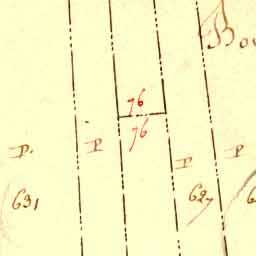 Bo
76
76
P. P P P
631 627 6